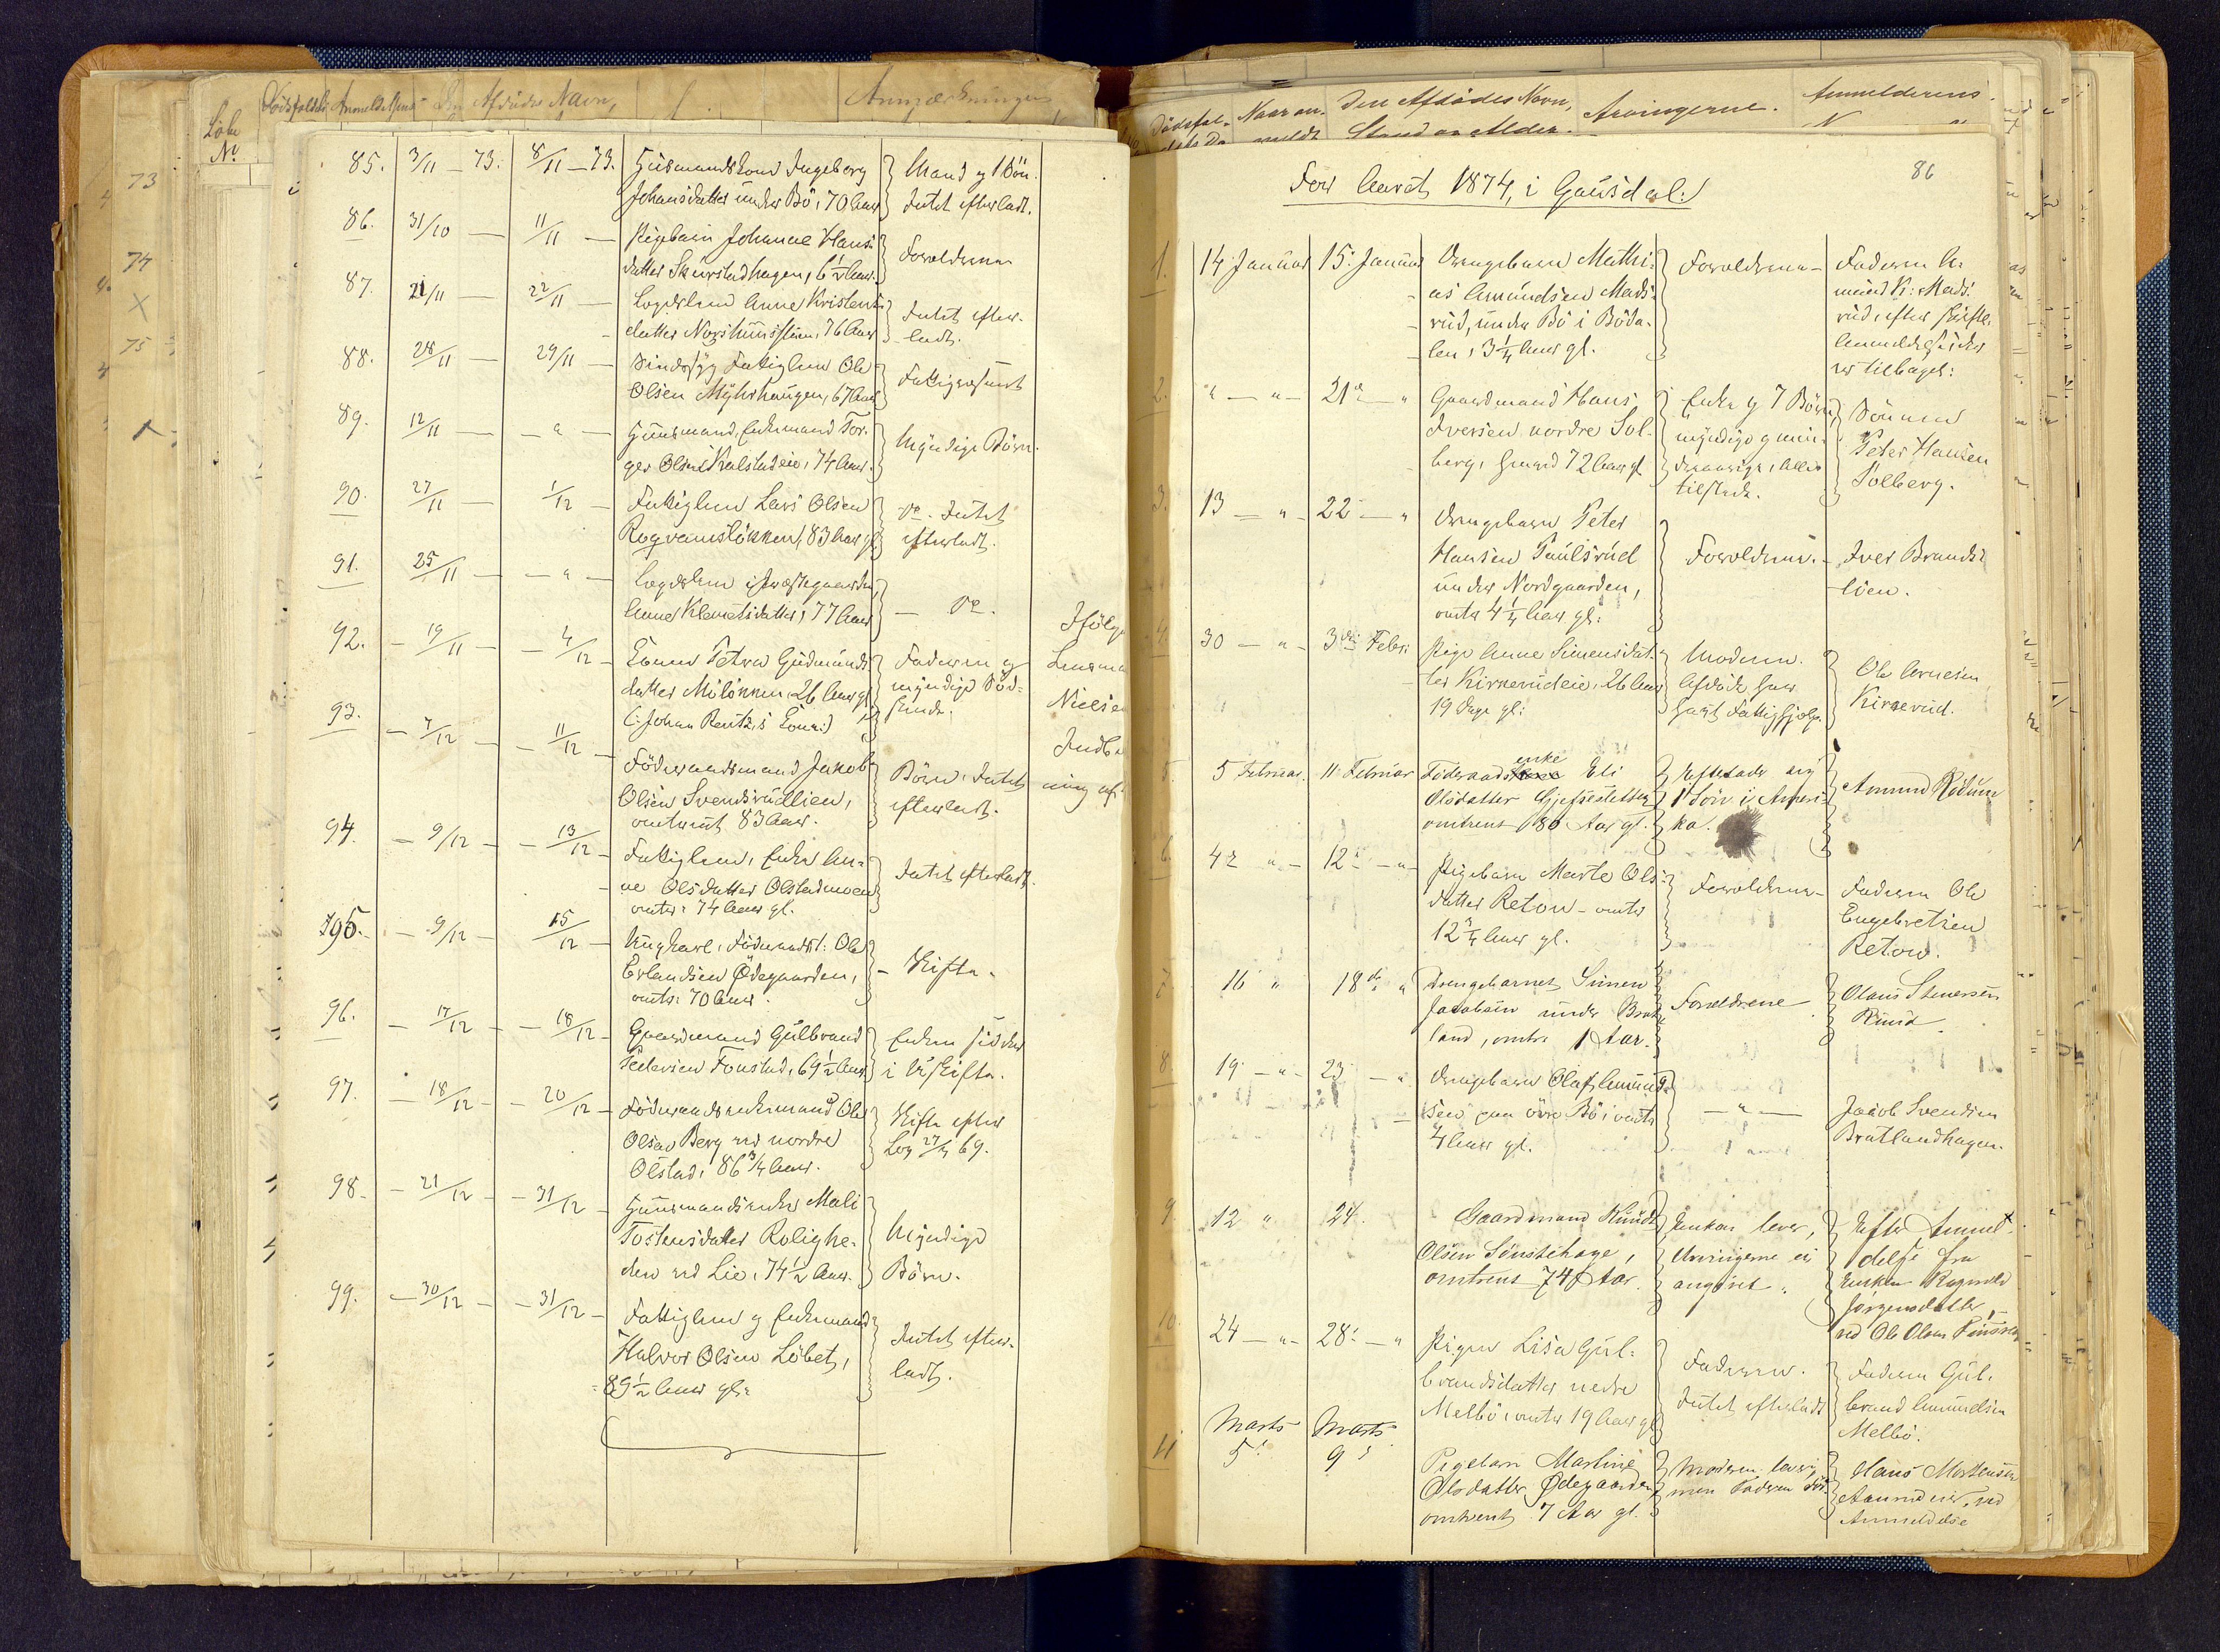 Löbe
No
Dödsfaldet Anmeldelsens Den Afdödes Navn,
Anmærkninger
73
74
X
75
85. 3/11 - 73. 8/11 - 73. Huusmandskone Ingeborg
Johansdatter under Bö, 70 Aar
Mand og 1 Sön.
Intet efterladt.
86. 31/10 — 11/11 — Pigebarn Johanne Hans-
datter Skurstadhagen, 6 1/2 Aar.
Forældrene
87. 21/11 — 22/11 — Lægdslem Anne Kristens-
datter, 76 Aar
Intet efter-
ladt.
88. 28/11 — 29/11 — Sindssyg Fattiglem Ole
Olsen Myhrhaugen, 67 Aar
89. 12/11 — — " — Huusmand, Enkemand Tor-
ger Olsen, 74 Aar.
Myndige Börn.
90. 27/11 — 1/12 — Fattiglem Lars Olsen
Rogvamslökken, 83 Aar gl.
Do. Intet
efterladt.
91. 25/11 — — " — Lægdslem i Præstegaarden,
Anne Klemetsdatter, 77 Aar
— Do.
92. — 19/11 — — 4/12 — Tetra Gudmunds-
datter, 26 Aar gl.
(: Johan Rentz's :)
Faderen og
myndige Söd-
skende.
Ifölge
Lensma
Nielse
Indb
ning af
93. — 7/12 — — 11/12 — Föderaadsmand Jakob
Olsen Svendsrudlien,
omtrent 83 Aar.
Börn. Intet
efterladt.
94. — 9/12 — — 13/12 — Fattiglem, Enke An-
ne Olsdatter Olstadmoen
omtr. 74 Aar gl.
Intet efterladt.
95. — 9/12 — 15/12 — Ungkarl, Föderaadsk: Ole
Erlandsen Ødegaarden,
omtr: 70 Aar.
— Skifte.
96. — 17/12 — — 18/12 — Gaardmand Gulbrand
Pedersen Fonstad, 69 1/2 Aar
Enken sidder
i Uskifte.
97. — 18/12 — — 20/12 — Föderaadsenkemand Ole
Olsen Berg ved nordre
Olstad, 86 3/4 Aar.
Skifte efter
Lov 27/3 69.
98. — 21/12 — — 31/12 — Huusmandsenke Mali
Tostensdatter Rolighe-
den ved Lie, 74 1/2 Aar.
Myndige
Börn.
99. — 30/12 — — 31/12 — Fattiglem og Enkemand
Halvor Olsen Löbet,
89 1/2 Aar gl.
Intet efter-
ladt.
Dödsfal-
Naar an-
meldt
Den Afdödes Navn,
Stand og Alder.
Arvingerne.
Anmelderens
86
For Aaret 1874, i Gausdal:
1. 14 Januar 15. Januar Drengebarn Mathi-
as Amundsen Mads-
rud, under Bö i Böda-
len, 3 1/4 Aar gl.
Forældrene —
Faderen A-
mund K: Mads-
rud, efter Skifte-
anmeldelse
tilbage:
2. " — " — 21de — " Gaardmand Hans
Iversen nordre Sol-
berg, 72 Aar gl.
Enke og 7 Börn,
myndige og min-
dreaarige, Alle
tilstede.
Sönnen
Peter Hansen
Solberg.
3. 13 — " — 22 — " Drengebarn Peter
Hansen Paulsrud
under Nordgaarden,
omtr 4 1/4 Aar gl:
Forældrene.
Iver Brands-
lien.
4. 30 — " — 3die Febr: Pige Anne Simensdat-
ter Kirkerudeie, 26 Aar
19 Dage gl:
Moderen.
Afdöde har
havt Fattighjelp.
Ole Arnesen
Kirkerud.
5. 5 Februar. 11 Februar Föderaadsenke Eli
Olsdatter
omtrent 80 Aar gl.
Efterlader sig
1 Sön i Ameri-
ka.
Amund Rödum
6. 4de " — 12te — " — Pigebarn Marte Ols-
datter Retow — omtr
12 3/4 Aar gl.
Forældrene —
Faderen Ole
Engebretsen
Retow.
7. 16 " 18de " Drengebarnet Simen
Jacobsen under Brat-
land, omtr. 1 Aar.
Forældrene
Olaus Stenersen
Ruud.
8. 19 — " — 23 — " Drengebarn Olaf Amund-
sen paa övre Bö, omtr
4 Aar gl.
— " —
Jacob Svendsen
Bratlandhagen.
9. 12 " 24. Gaardmand Knud
Olsen Sönstehage,
omtrent 74 Aar.
Enken lever,
Arvingerne ei
angivet.
Efter Anmel-
delse fra
Enken Ragnild
Jörgensdatter,
ved Ole Olsen
10. 24 — " — 28: — " Pigen Lisa Gul-
brandsdatter nedre
Melbö, omtr 19 Aar gl
Faderen.
Intet efterladt
Faderen Gul-
brand Amundsen
Melbö.
11. Marts 5: Marts 9: Pigebarn Martine
Olsdatter Ødegaarden,
omtrent 7 Aar gl.
Moderen lever,
men Faderen död.
Hans Mortensen
ved
Anmeldelse